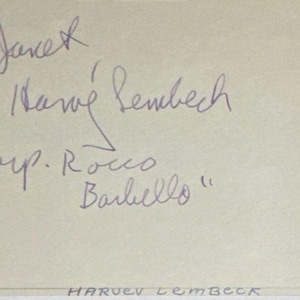 Janet
Harvey Lembeck
orp. Rocco
Barbello"
HARVEY LEMBECK